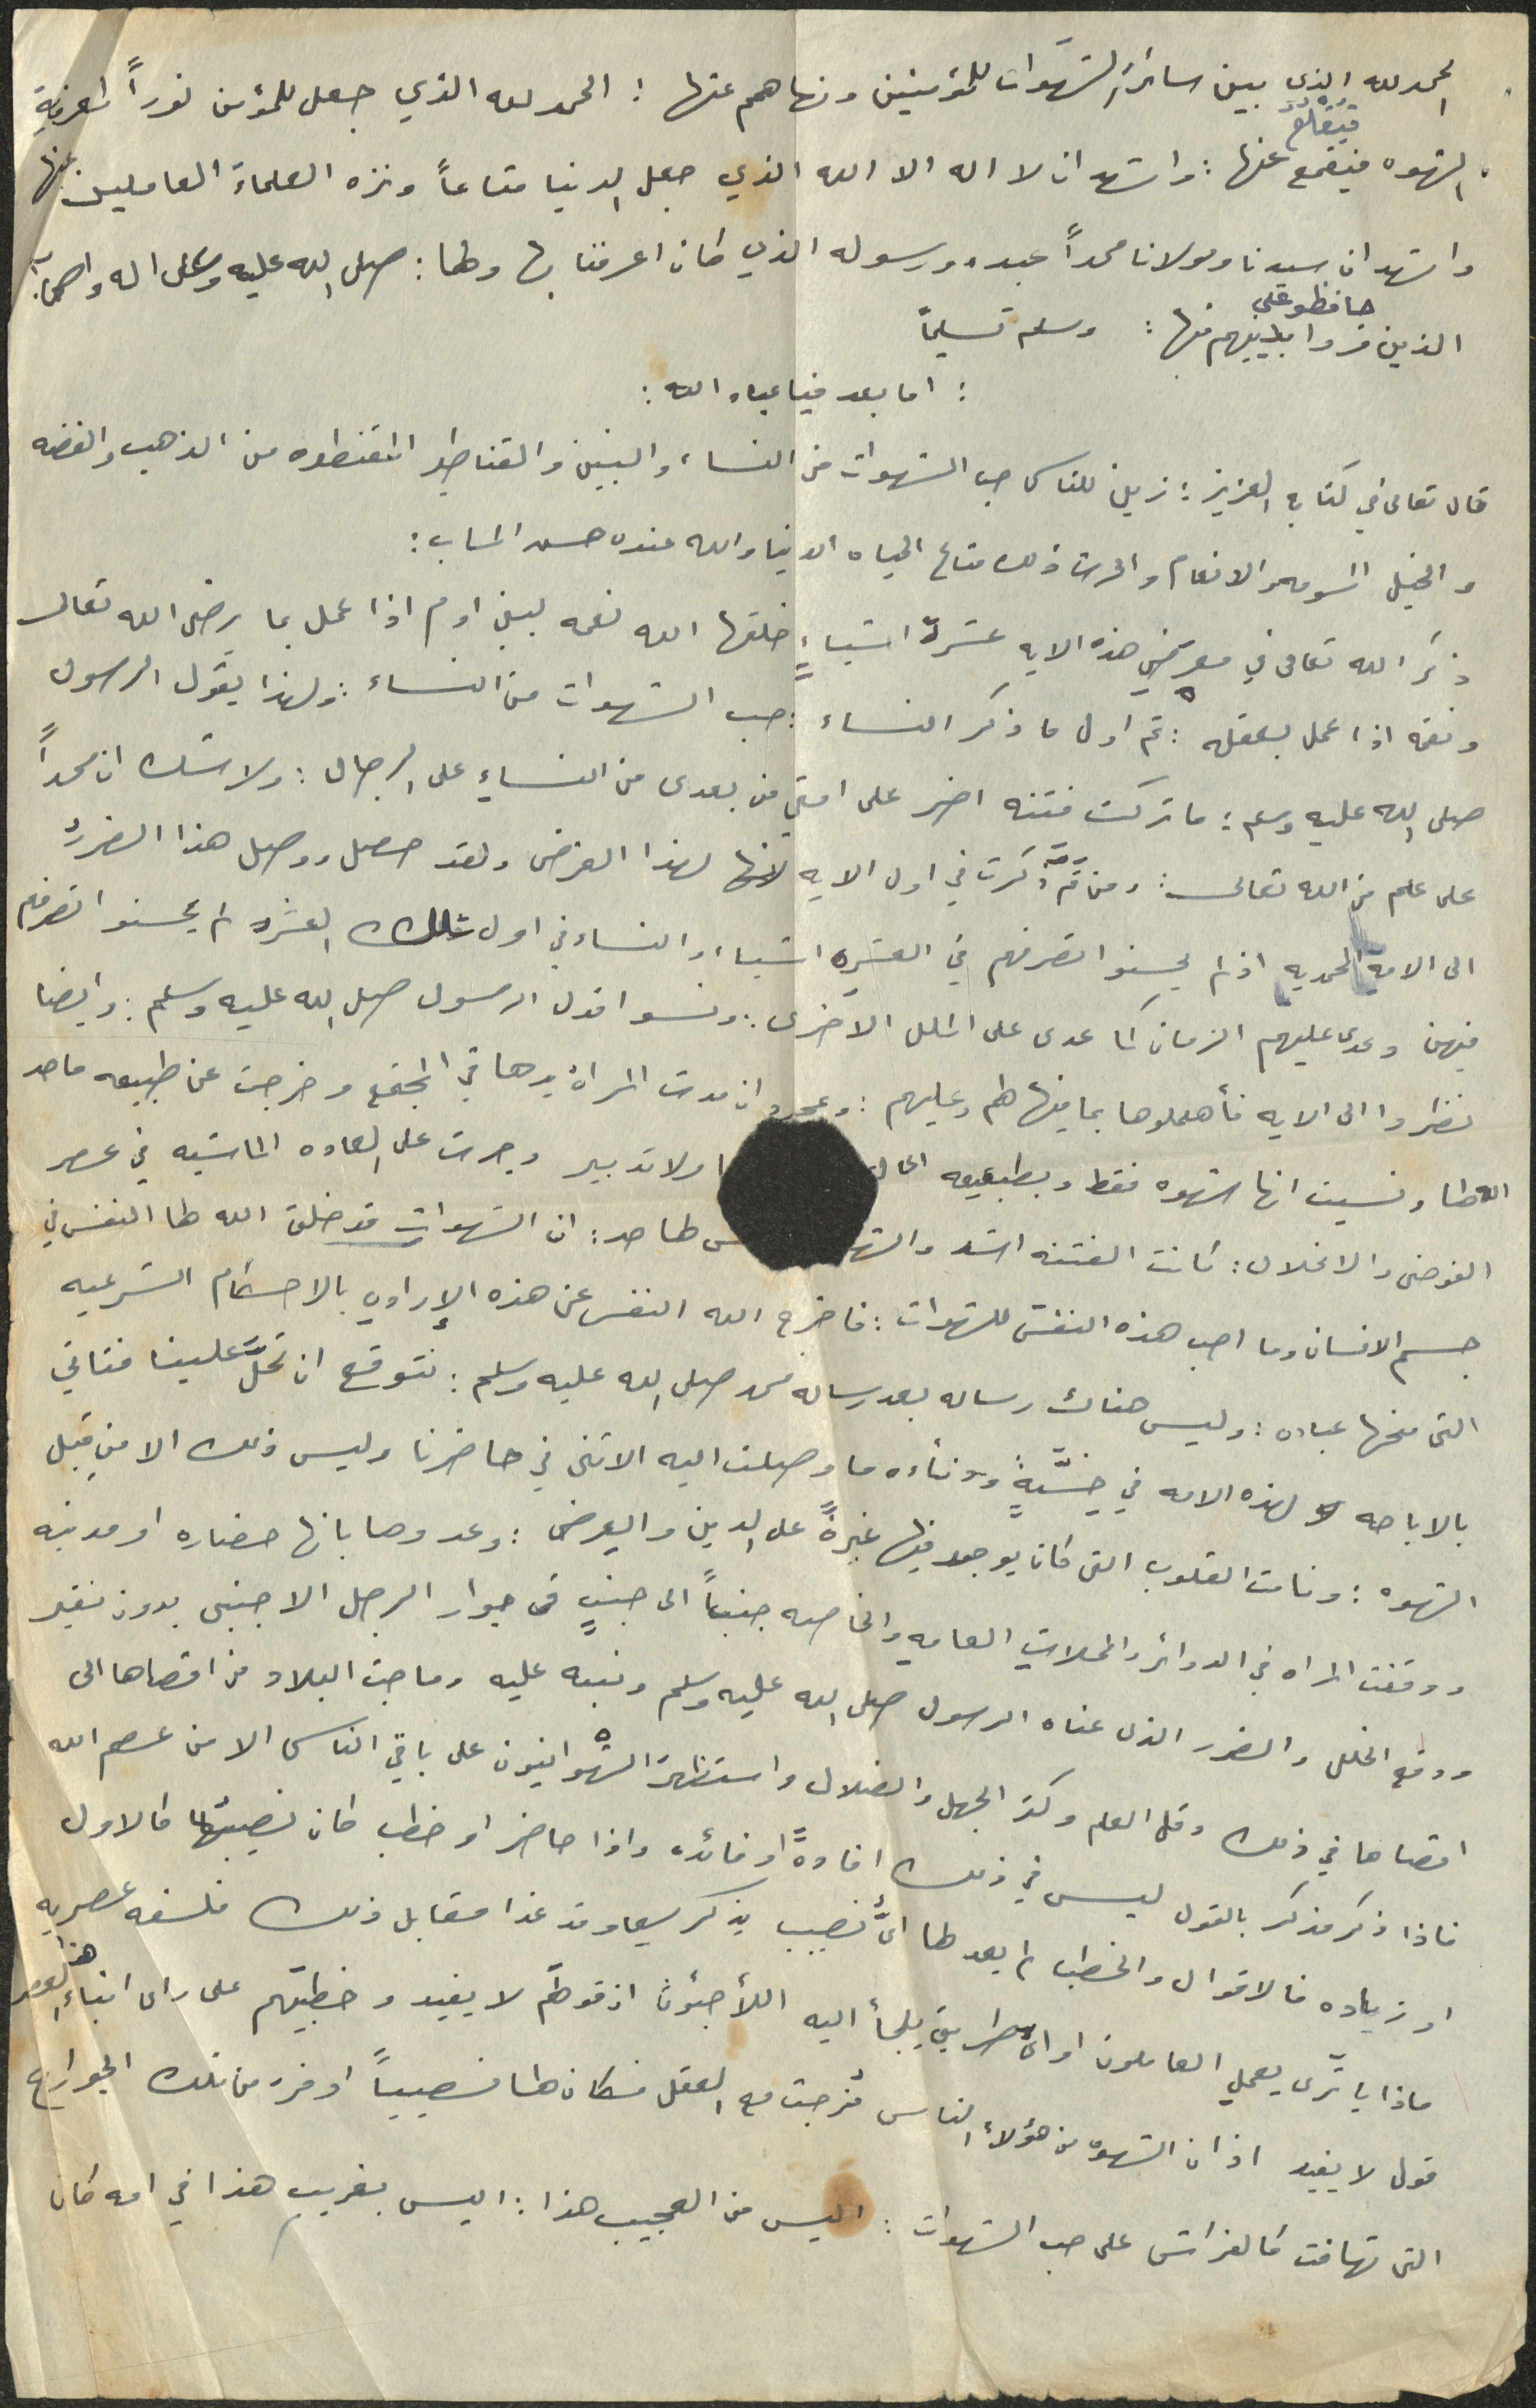 الحمد لله الذي بين سائرَ الشهَوات للمؤمنين ونهاهم عنها : الحمد لله الذي جعل للمؤمن نوراً لمعرفةِ
الشهوه فيقمع عنها : واشهد ان لا اله الا الله الذي جعل الدنيا متاعاً ونزه العلماءَ العاملين عنها
واشهد ان سيدنا ومولانا محمداً عبده ورسوله الذي كان اعرفنا بها ولها : صلى الله عليه وعلى اله واصحابه
حافظو على
الذين فروا بدينهم منها : وسلم تسليماً
: اما بعد فيا عباد الله :
قال تعالى في كتابه العزيز : زين للناس حب الشهوات من النساء والبنين والقناطير المقنطره من الذهب والفضه
والخيل المسومه والانعام والحرث ذلك متاع الحياه الدنيا والله عنده حسن الماب :
ذكَر الله تعالى في معرض هذه الايه عشرةَ اشياءٍ خلقها الله نعمه لبني ادم اذا عمل بما يرضى الله تعالى
ونقمه اذا عمل بعقله : ثم اول ما ذكر النساء : حب الشهوات من النساء : ولهذا يقول الرسول
صلى الله عليه وسلم : ما تركت فتنه اضر على امتي من بعدى من النساءِ على الرجال : ولا شك ان محمداً
على علم من الله تعالى : ومن ثَمَّ ذكرت في اول الايه لانها لهذا الغرض ولقد حصل ووصل هذا الضررُ
الى الامه المحمديه اذ لم يحسنوا تصرفهم في العشره اشياء والنساء في اول تلك العشره لم يحسنوا تصرفهم
فيهن وعدى عليهم الزمان كما عدى على الملل الاخرى : ونسوا قول الرسول صلى الله عليه وسلم : وايضا
نظروا الى الايه فأهملوها بما فيها لهم وعليهم : وبمجرد ان مدت المراة يدها في المجتمع وخرجت عن طبيعه ما حد
الله لها ونسيت انها شهوه فقط وبطبيعه الحال ولا تدبير وجرت على العاده الماشيه في عصر
الفوضى والانحلال : كانت الفتنه اشد لها حد : ان الشهوات قد خلق الله لها النفس في
جسم الانسان وما احب هذه النفس للشهوات : فاخرج الله النفس عن هذه الإرادهِ بالاحكام الشرعيه
التى منحها عباده : وليس هناك رساله بعد رساله محمد صلى الله عليه وسلم : نتوقع ان تحلَّ علينا فتاتي
بالاباحه لهذه الامه في خِسَّةٍ ودناءه ما وصلت اليه الانثى في حاضرنا وليس ذلك الا من قِبل
الشهوه : ونامت القلوب التى كان يوجد فيها غيرةً على الدين والعرض : وعدوها بانها حضاره او مدنيه
ووقفت المراه في الدوائر والمحلاتِ العامه والخاصه جنباً الى جنبٍ فى جوار الرجل الاجنبى بدون نفير
ووقع الخلل والضرر الذى عناه الرسول صلى الله عليه وسلم ونبه عليه وماجت البلاد من اقصاها الى
اقصاها في ذلك وقل العلم وكثر الجهل والضلال واستظهرَ الشهوانيون على باقي الناس الا من عصم الله
فاذا ذكر مذكر بالقول ليس في ذلك افادةً او فائده واذا حاضر او خطب كان نصيبها كالاول
او زياده فالاقوال والخطب لم يعد لها أىُّ نصيب يذكر سيما وقد غدا مقابل ذلك فلسفه عصريه
ماذا يا تُرى يعمل العاملون او اى طريق يلجأ اليه اللأجئون اذ قولهم لا يفيد وخطبتهم على راى ابناء هذا العصر
قول لا يفيد اذ ان الشهوه من هؤلاء الناس مُزجت مع العقل فكان لها نصيباً اوفر من تلك الجوارح
التى تهافت كالفراش على حب الشهوات : اليس من العجيب هذا : اليس بغريب هذا في امه كان